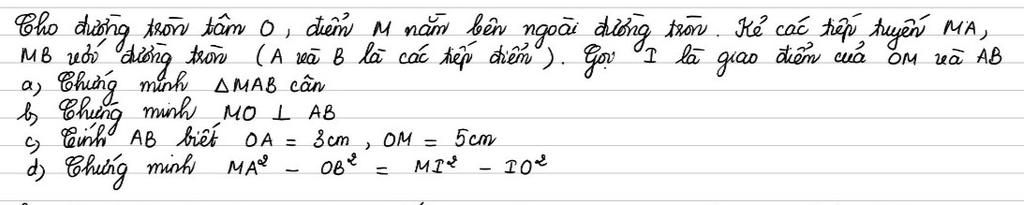 Cho đường tròn tâm O, điểm M nằm bên ngoài đường tròn. Kẻ các tiếp tuyến MA,
MB với đường tròn (A và B là các tiếp điểm). Gọi I là giao điểm của OM và AB
a) Chứng minh ΔMAB cân
b) Chứng minh MO ⊥ AB
c) Tính AB biết OA = 3cm, OM = 5cm
d) Chứng minh MA² - OB² = MI² - IO²